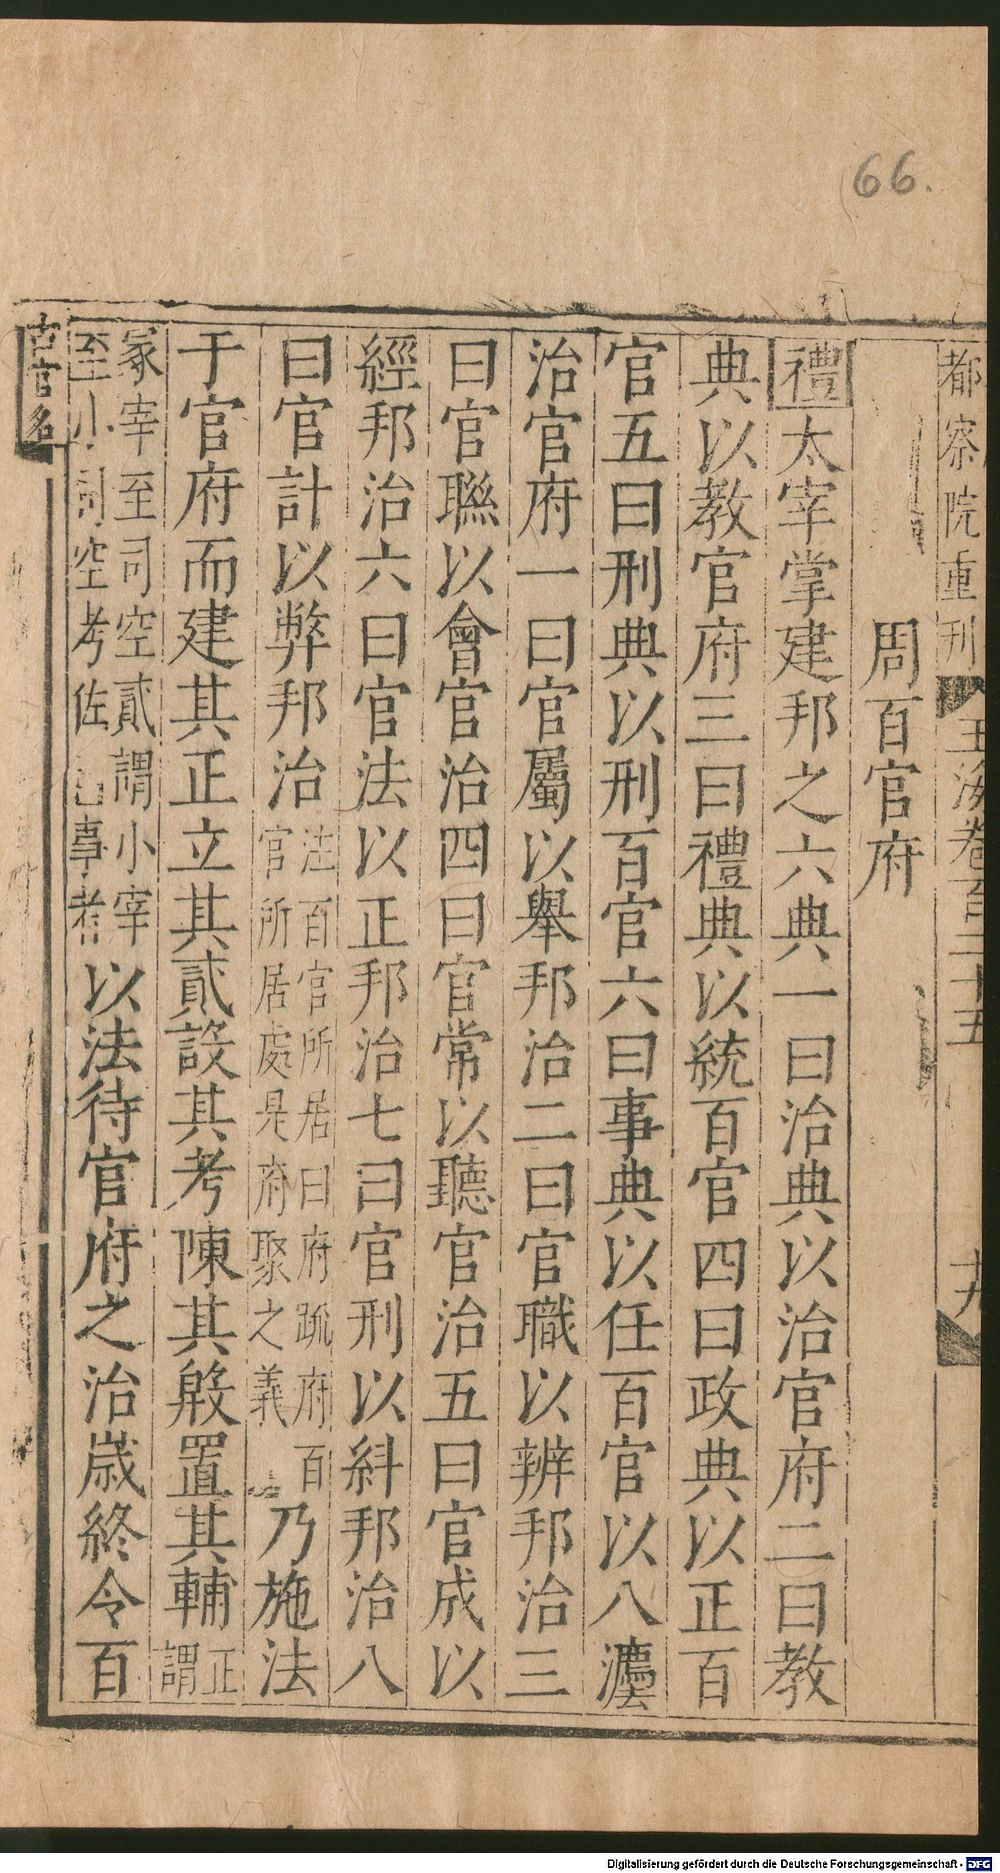 66.
都察院重刊 玉海卷百二十五 十九
周百官府
禮太宰掌建邦之六典一曰治典以治官府二曰教
典以教官府三曰禮典以統百官四曰政典以正百
官五曰刑典以刑百官六曰事典以任百官以八灋
治官府一曰官屬以舉邦治二曰官職以辨邦治三
曰官聮以會官治四曰官常以聽官治五曰官成以
經邦治六曰官法以正邦治七曰官刑以糾邦治八
曰官計以弊邦治注百官所居曰府疏府百官所居處是府聚之義乃施法
于官府而建其正立其貳設其考陳其殷置其輔正謂
冢宰至司空貳謂小宰至小司空考佐事者以法待官府之治歲終令百
古官名
Digitalisierung gefördert durch die Deutsche Forschungsgemeinschaft - DFG